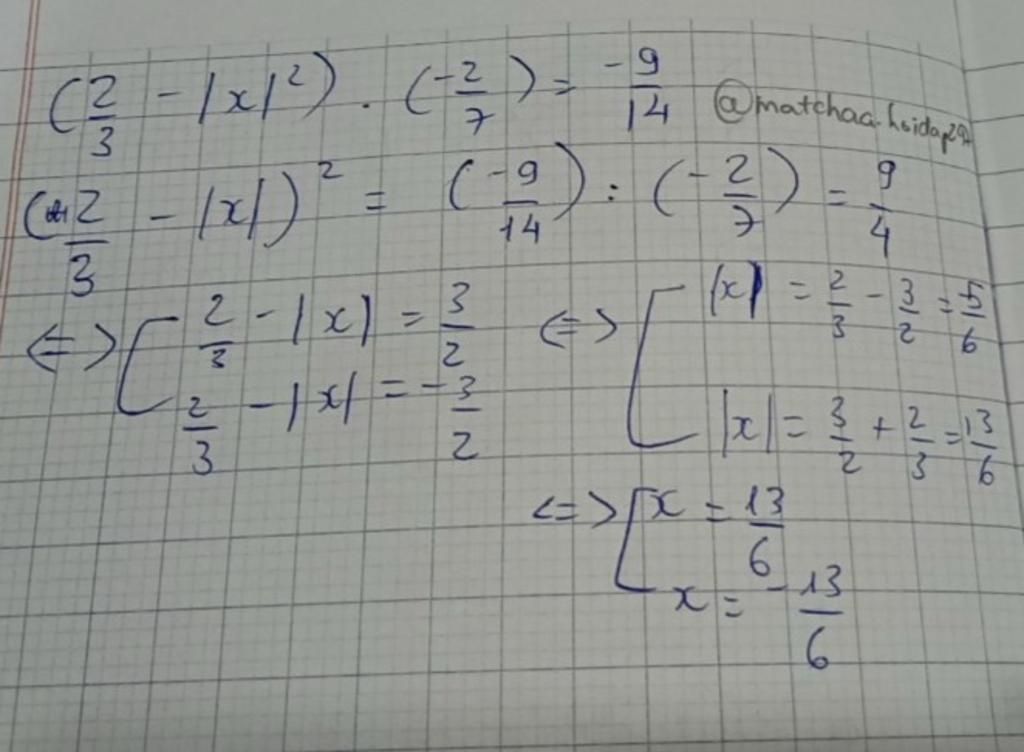 (2/3 - |x|²) . (-2/7) = -9/14 @matchaa.hoidap247
(2/3 - |x|)² = (-9/14) : (-2/7) = 9/4
<=> [ 2/3 - |x| = 3/2 <=> [ |x| = 2/3 - 3/2 = -5/6
2/3 - |x| = -3/2 |x| = 3/2 + 2/3 = 13/6
<=> [ x = 13/6
x = -13/6